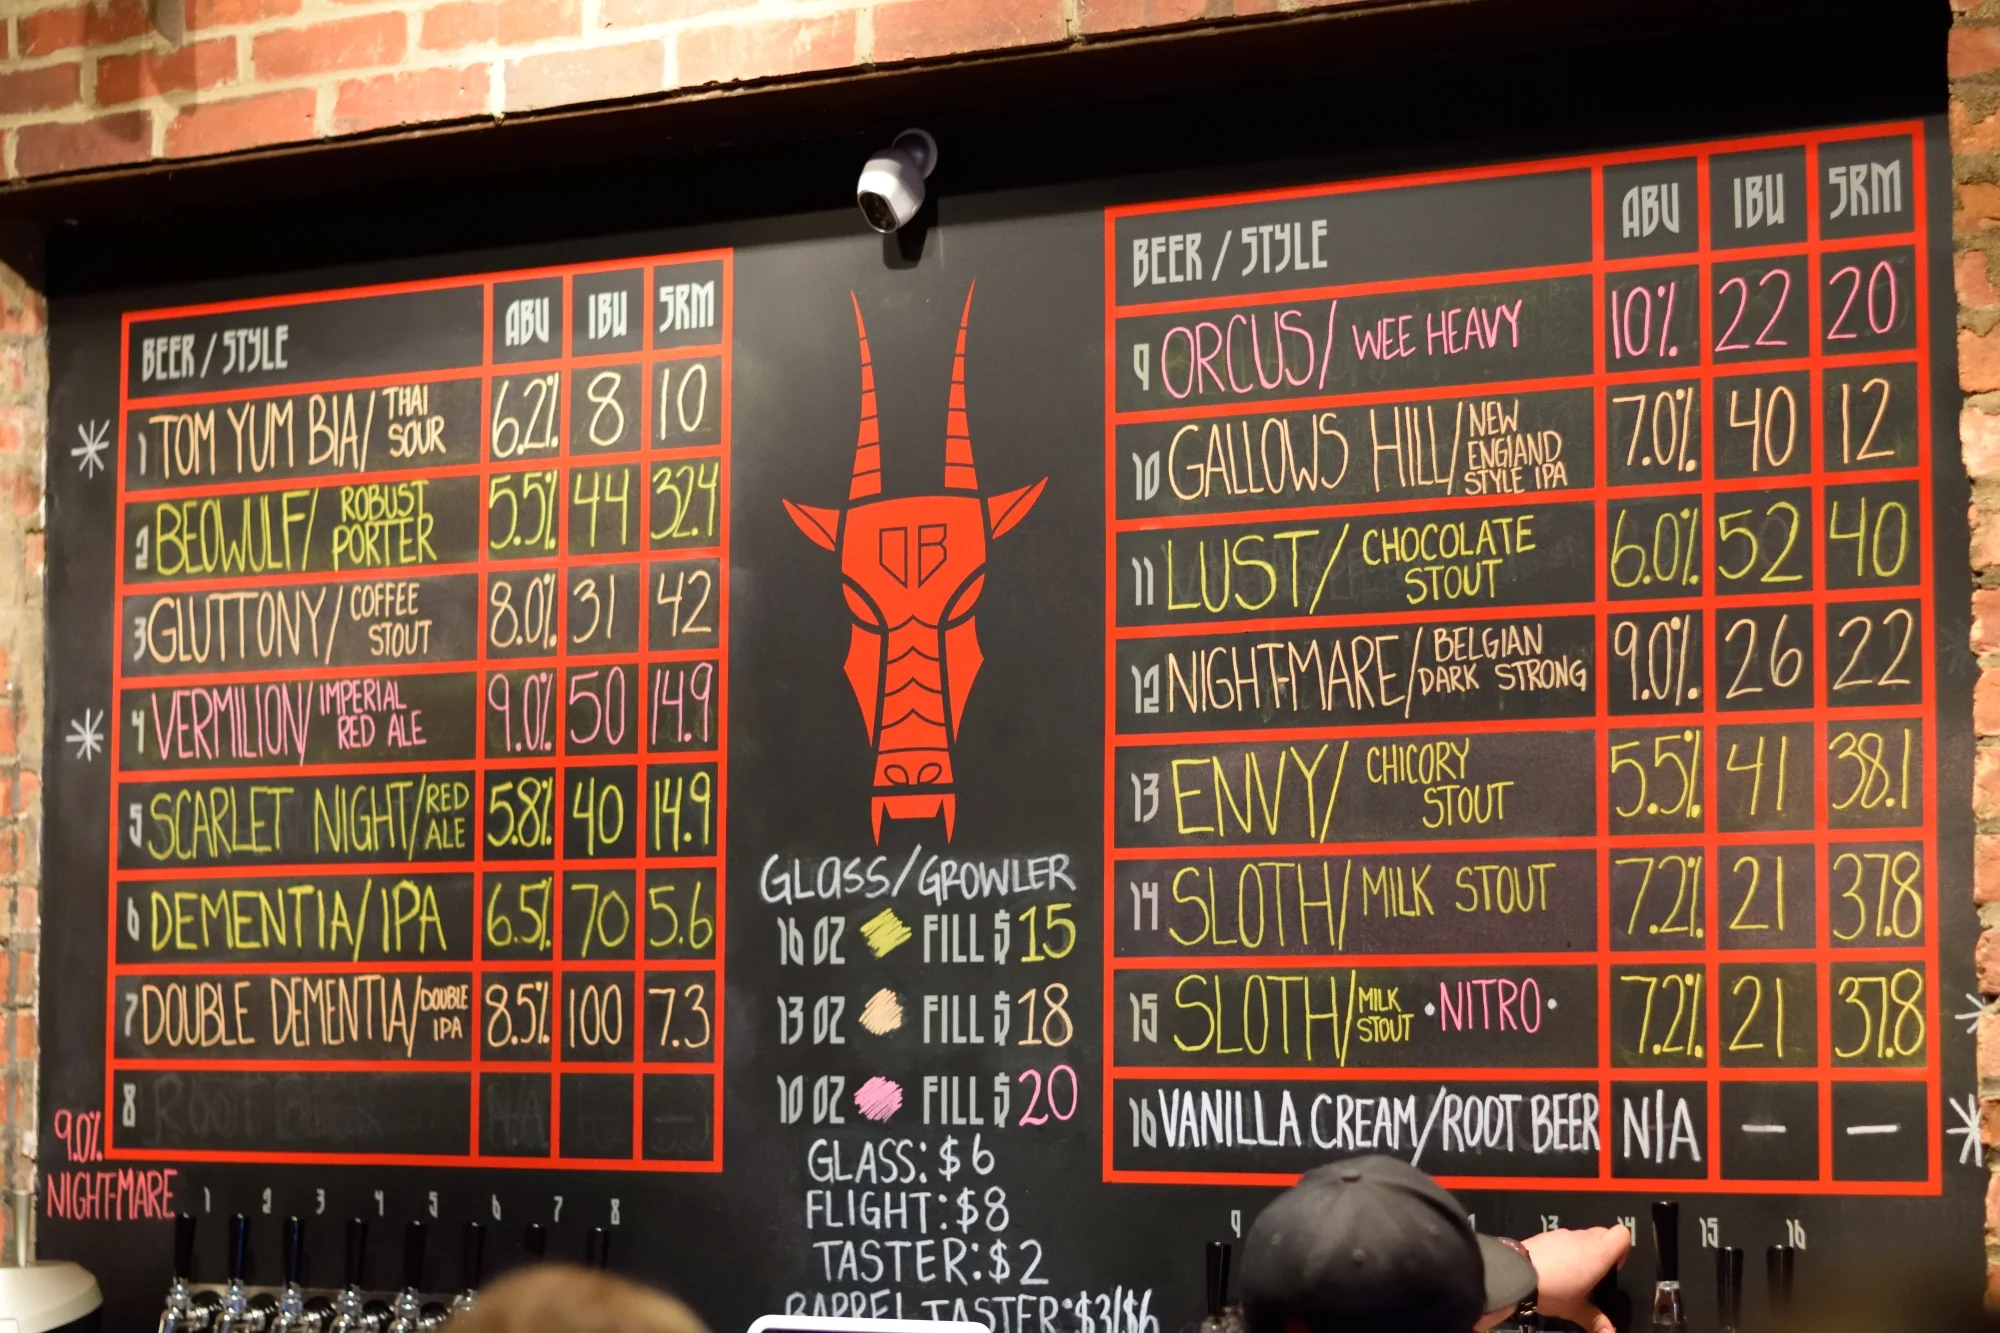 BEER / STYLE ABV IBU SRM
1 TOM YUM BIA/ THAI SOUR 6.2% 8 10
2 BEOWULF/ ROBUST PORTER 5.5% 44 32.4
3 GLUTTONY/ COFFEE STOUT 8.0% 31 42
4 VERMILION/ IMPERIAL RED ALE 9.0% 50 14.9
5 SCARLET NIGHT/ RED ALE 5.8% 40 14.9
6 DEMENTIA/ IPA 6.5% 70 5.6
7 DOUBLE DEMENTIA/ DOUBLE IPA 8.5% 100 7.3
8 ROOT BEER N/A — —
9.0%
NIGHTMARE
1 2 3 4 5 6 7 8
DB
GLASS/GROWLER
16 OZ FILL $15
13 OZ FILL $18
10 OZ FILL $20
GLASS: $6
FLIGHT: $8
TASTER: $2
BARREL TASTER: $3/$6
BEER / STYLE ABV IBU SRM
9 ORCUS/ WEE HEAVY 10% 22 20
10 GALLOWS HILL/ NEW ENGLAND STYLE IPA 7.0% 40 12
11 LUST/ CHOCOLATE STOUT 6.0% 52 40
12 NIGHTMARE/ BELGIAN DARK STRONG 9.0% 26 22
13 ENVY/ CHICORY STOUT 5.5% 41 38.1
14 SLOTH/ MILK STOUT 7.2% 21 37.8
15 SLOTH/ MILK STOUT •NITRO• 7.2% 21 37.8
16 VANILLA CREAM/ROOT BEER N/A — —
9 13 14 15 16